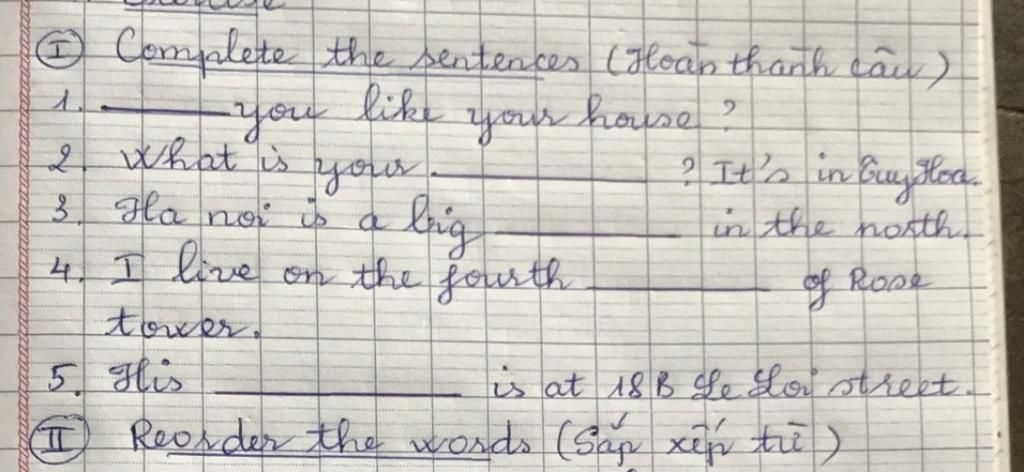 Exercise
I Complete the sentences (Hoàn thành câu)
1. ______ you like your house?
2. What is your ______ ? It's in Quy Hoa.
3. Ha noi is a big ______ in the north.
4. I live on the fourth ______ of Rose
tower.
5. His ______ is at 18B Le Loi street.
II Reorder the words (Sắp xếp từ)